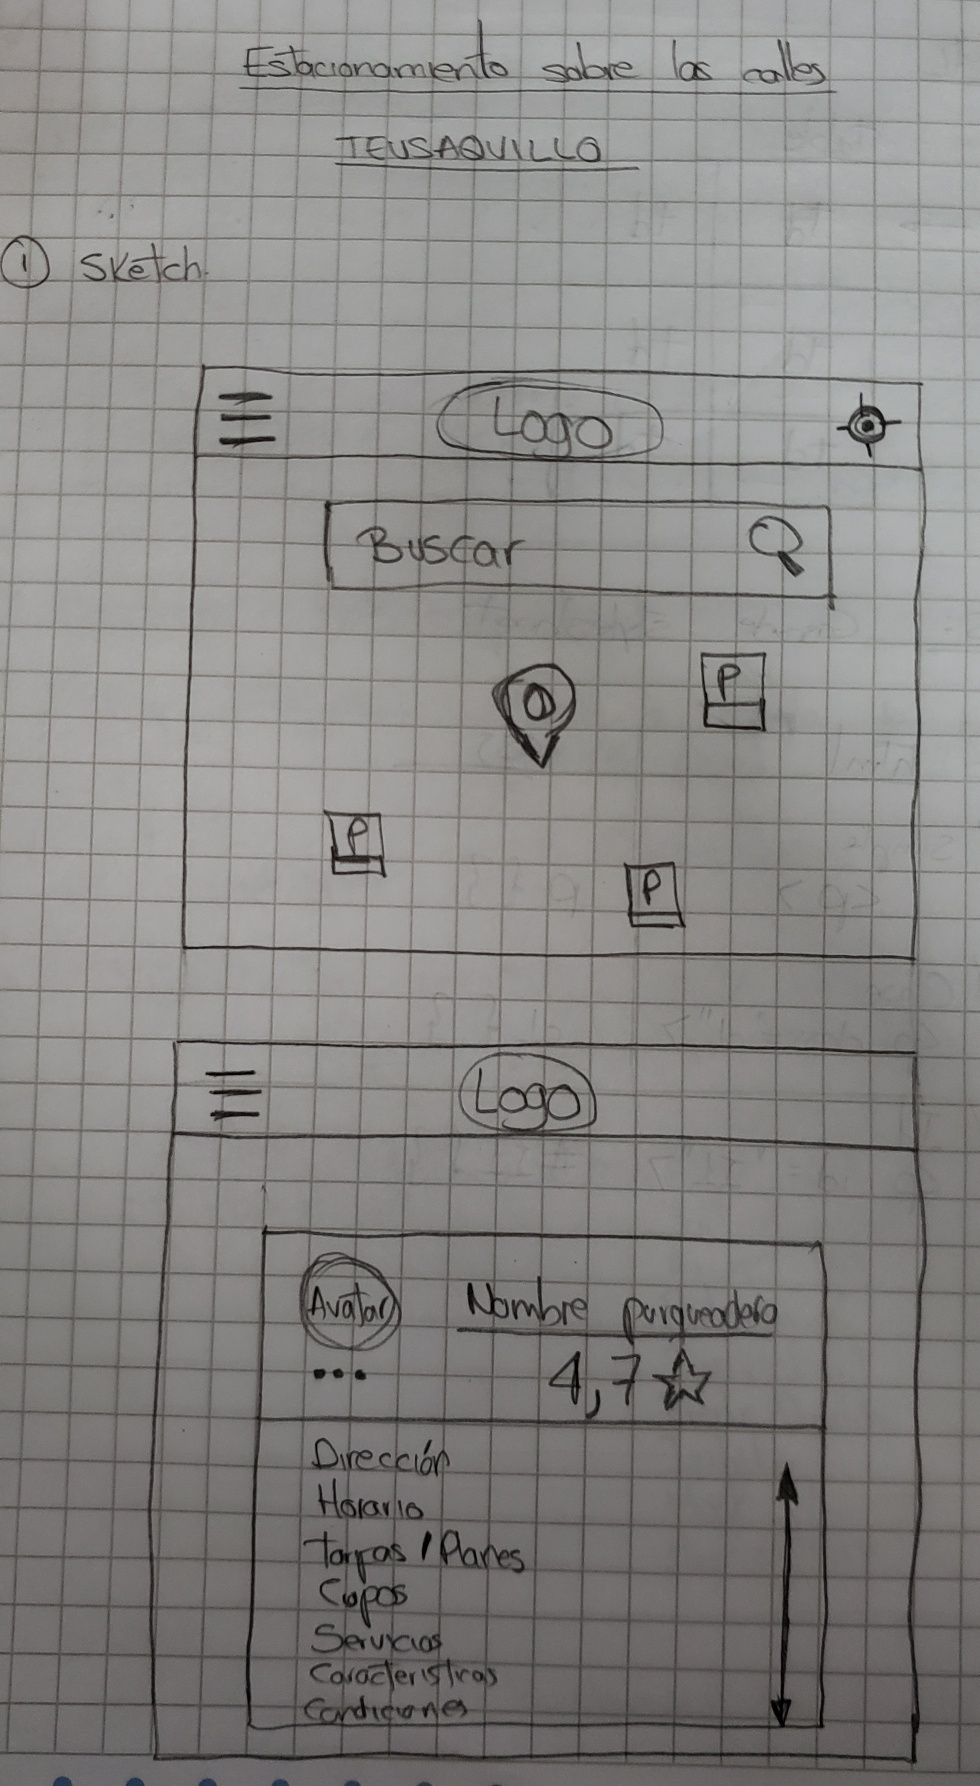 Estacionamiento sobre las calles
TEUSAQUILLO
① Sketch.
Logo
Buscar
P
P
P
Logo
Avatar Nombre parqueadero
4,7
Dirección
Horario
Tarifas / Planes
Cupos
Servicios
Características
Condiciones